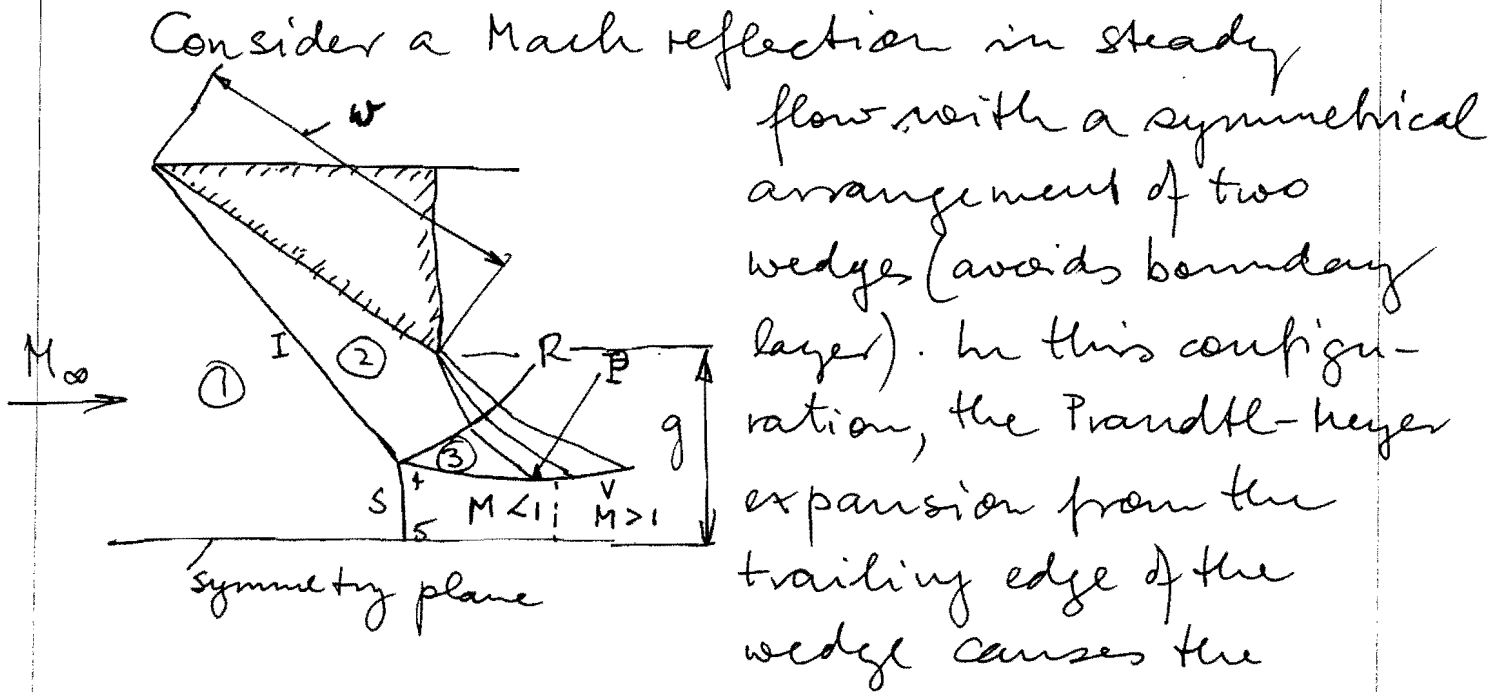 Consider a Mach reflection in steady
flow with a symmetrical
arrangement of two
wedges (avoids boundary
layer). In this configu-
ration, the Prandtl-Meyer
expansion from the
trailing edge of the
wedge causes the
w
M∞
1
I
2
R
P
g
3
S
4
5
M<1
V
M>1
symmetry plane